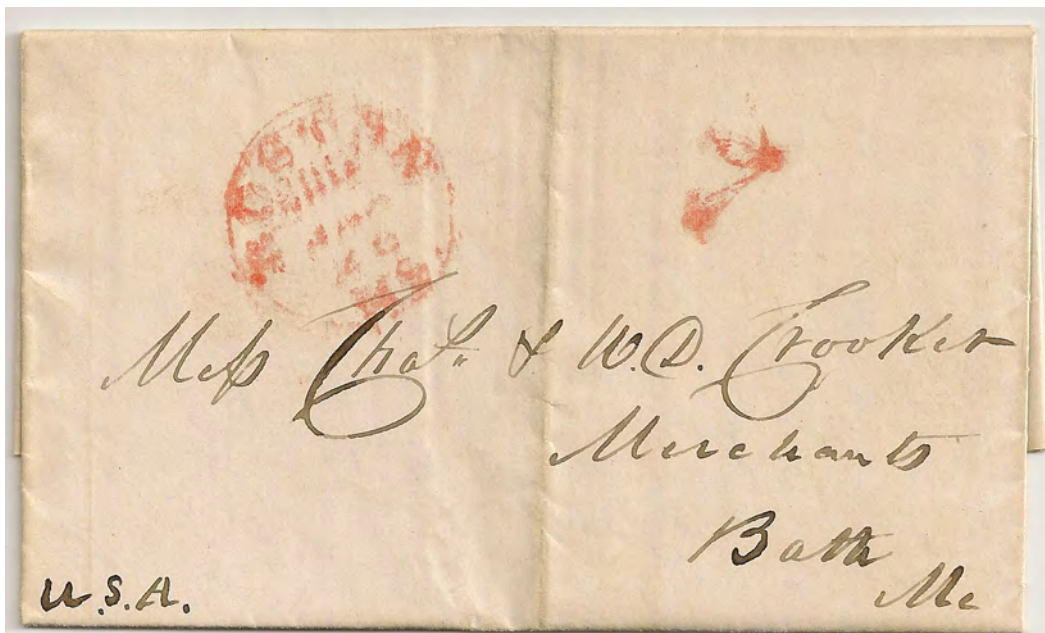 BOSTON
SHIP
MS
7
Mess Chas. & W.D. Crooker
Merchants
Bath
Me
U.S.A.